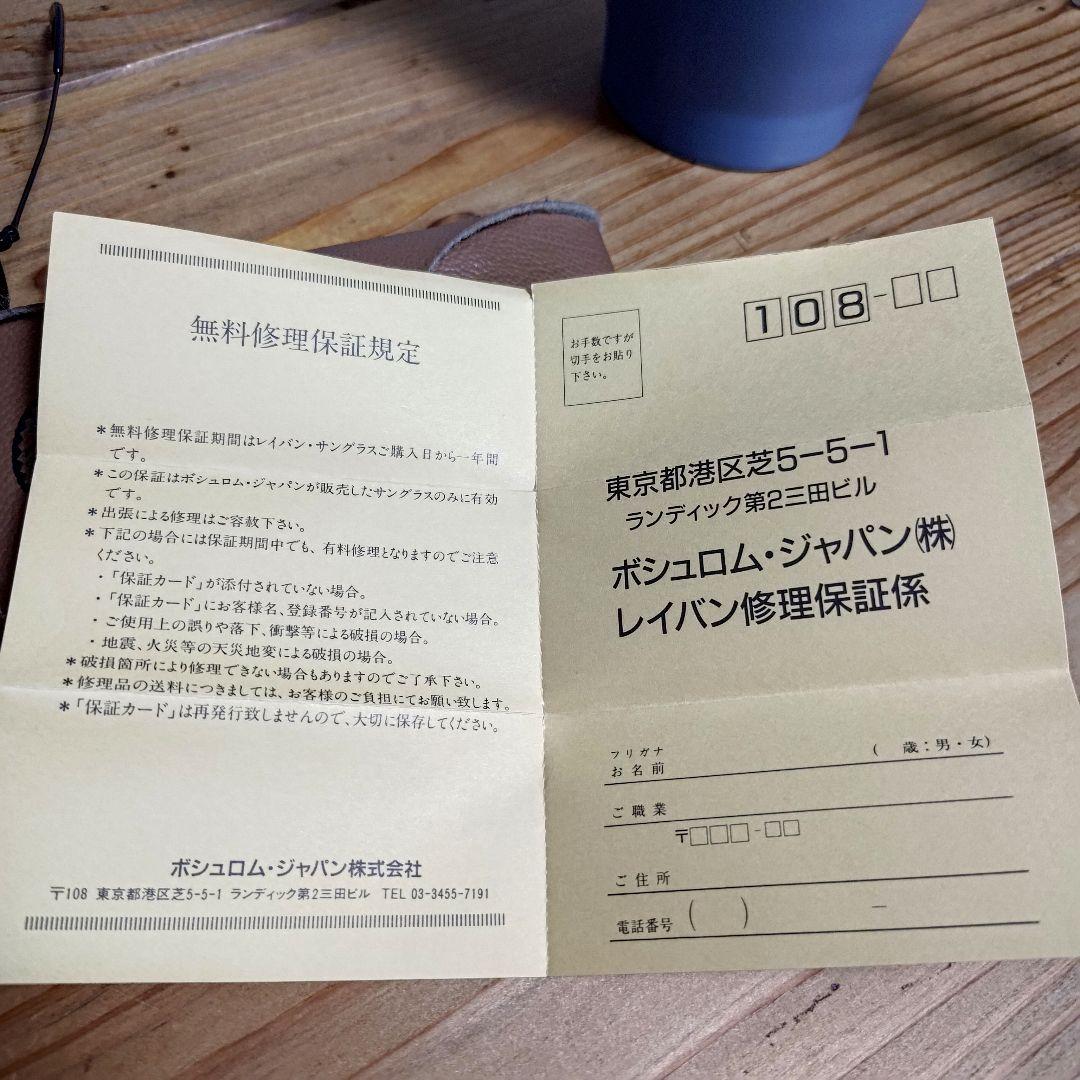 無料修理保証規定
＊無料修理保証期間はレイバン・サングラスご購入日から一年間
です。
＊この保証はボシュロム・ジャパンが販売したサングラスのみに有効
です。
＊出張による修理はご容赦下さい。
＊下記の場合には保証期間中でも、有料修理となりますのでご注意
ください。
・「保証カード」が添付されていない場合。
・「保証カード」にお客様名、登録番号が記入されていない場合。
・ご使用上の誤りや落下、衝撃等による破損の場合。
・地震、火災等の天災地変による破損の場合。
＊破損箇所により修理できない場合もありますのでご了承下さい。
＊修理品の送料につきましては、お客様のご負担にてお願い致します。
＊「保証カード」は再発行致しませんので、大切に保存してください。
ボシュロム・ジャパン株式会社
〒108 東京都港区芝5-5-1 ランディック第2三田ビル TEL 03-3455-7191
お手数ですが
切手をお貼り
下さい。
108-□□
東京都港区芝5-5-1
ランディック第2三田ビル
ボシュロム・ジャパン㈱
レイバン修理保証係
フリガナ
お名前 ( 歳：男・女)
ご職業
〒□□□-□□
ご住所
電話番号 ( ) －